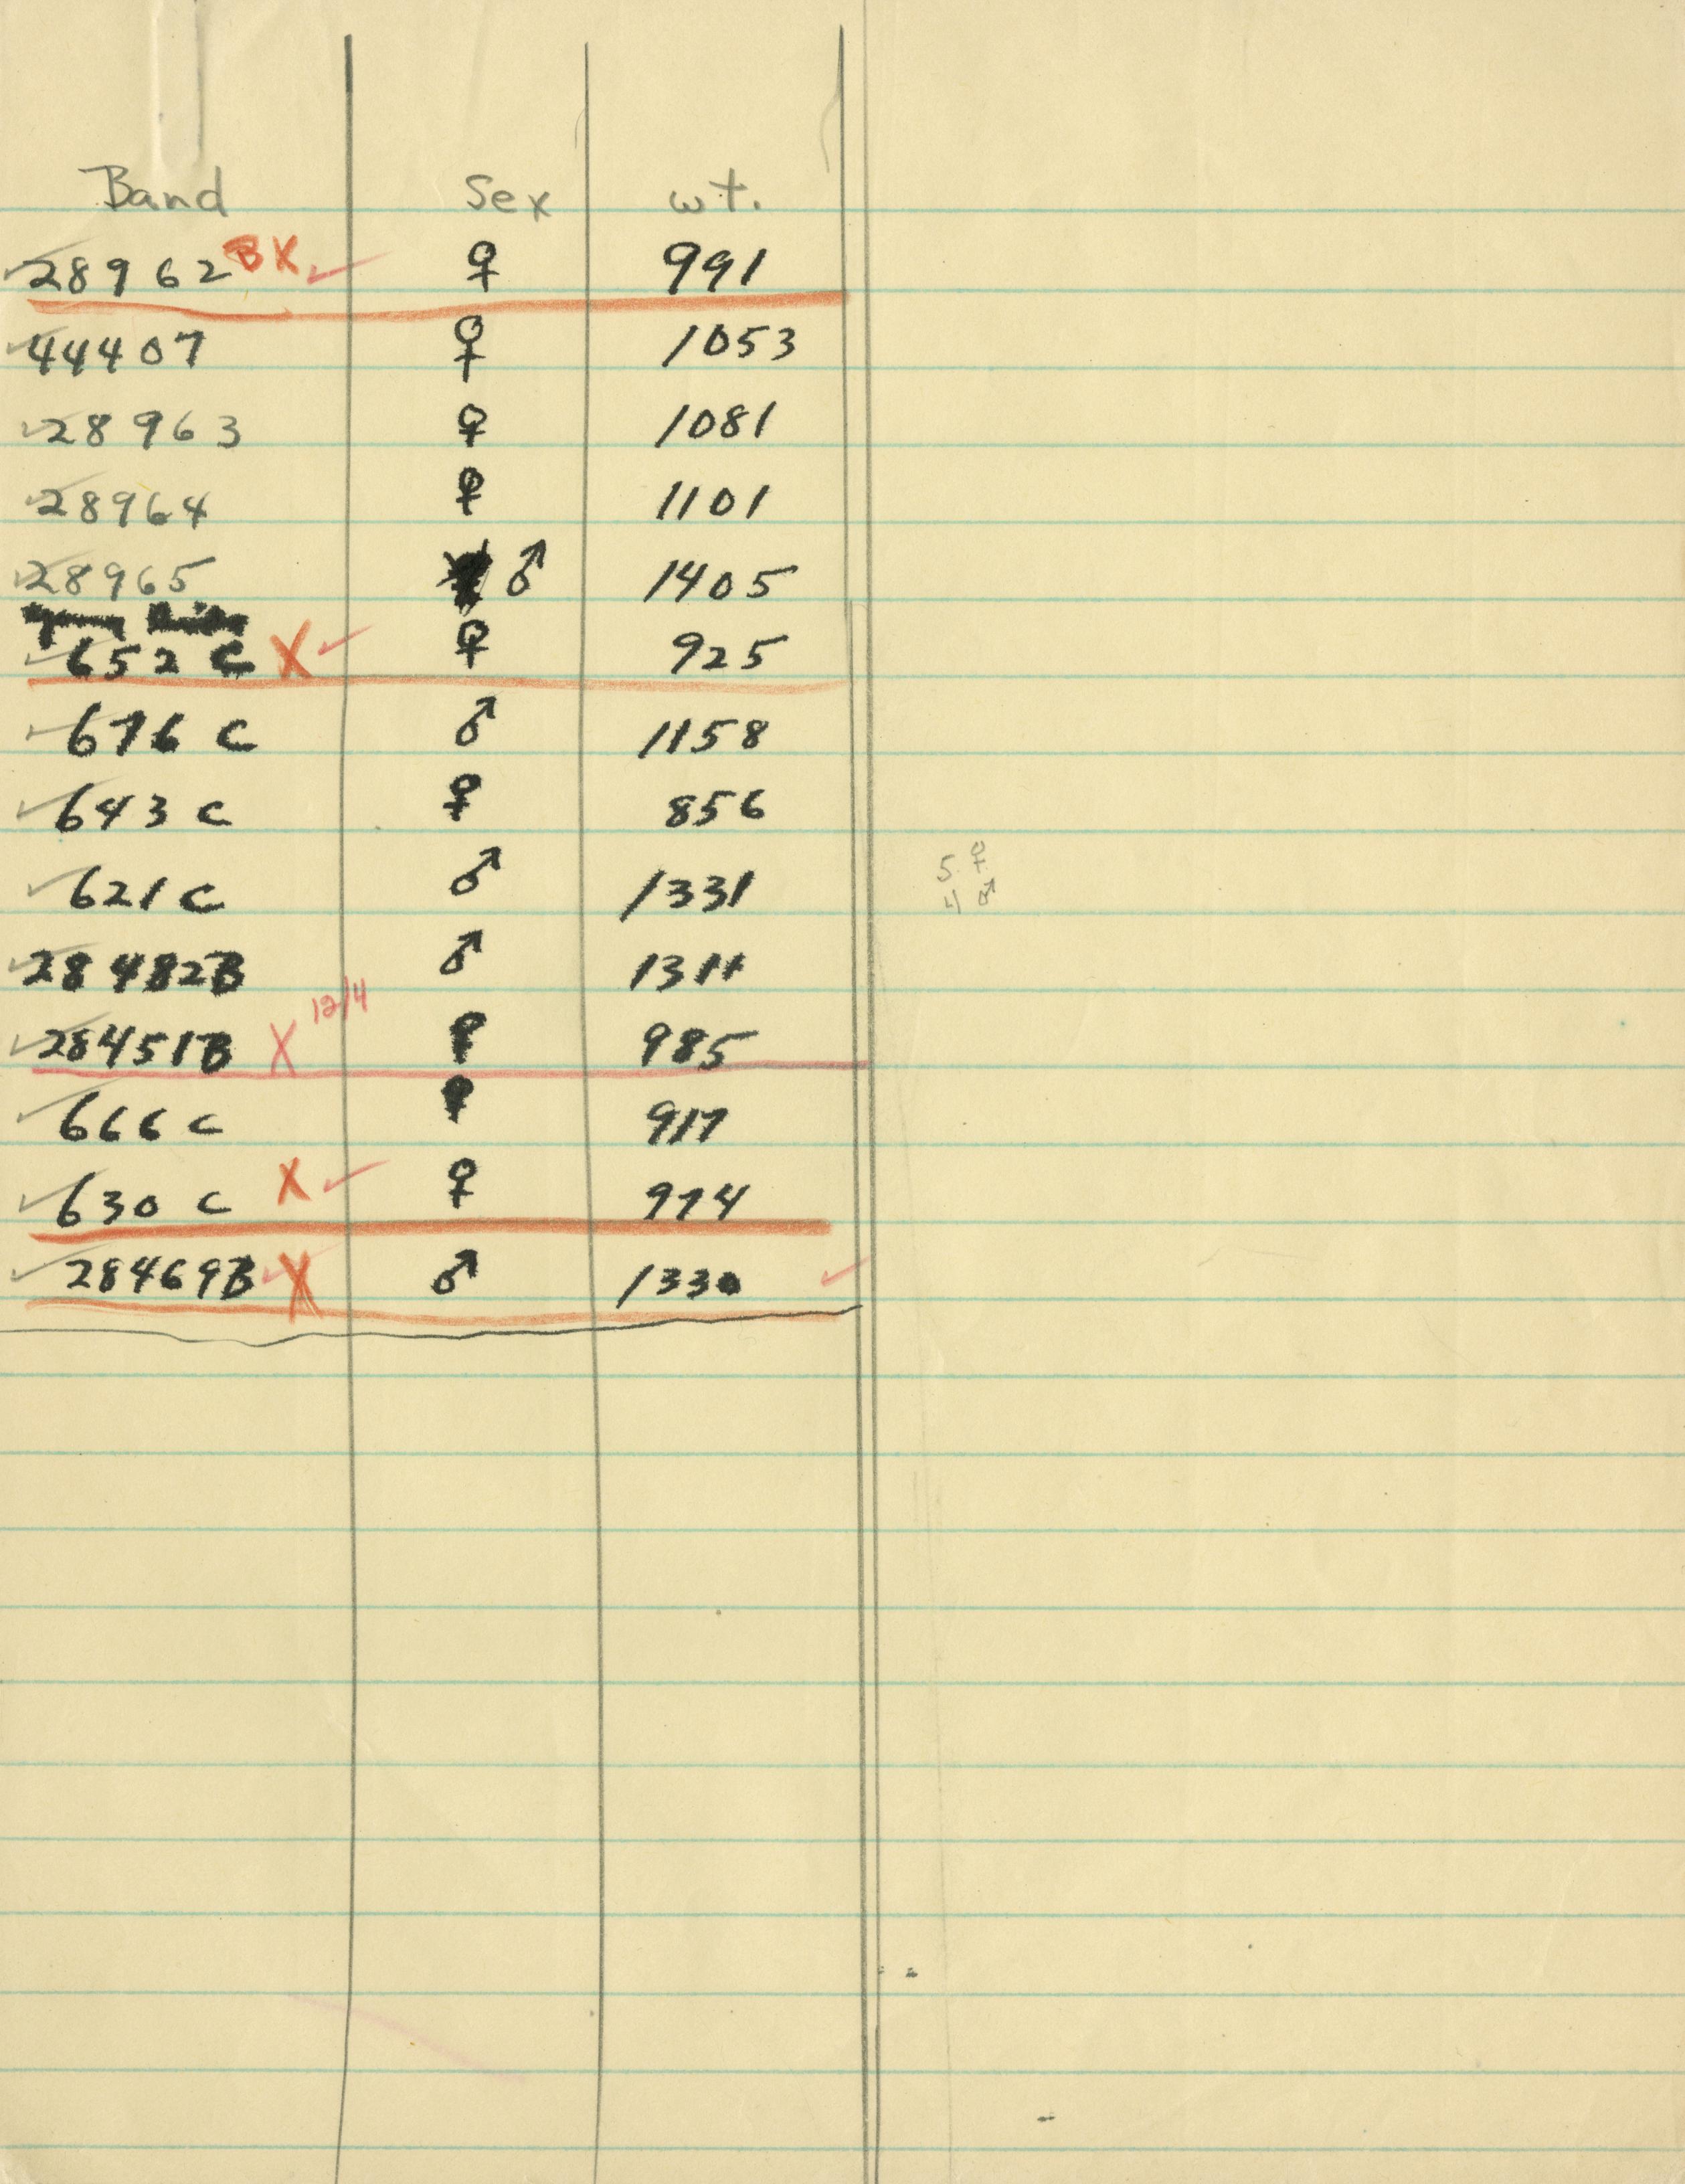 Band Sex wt.
28962 B X ✓ ♀ 991
44407 ♀ 1053
28963 ♀ 1081
28964 ♀ 1101
28965 ♂ 1405
652 C X ✓ ♀ 925
676 C ♂ 1158
643 C ♀ 856
621 C ♂ 1331
5 ♀
4 ♂
28482B ♂
12/4
28451B X ♀ 985
666 C ♀ 917
630 C X ✓ ♀ 974
28469B X ♂ 1330 ✓